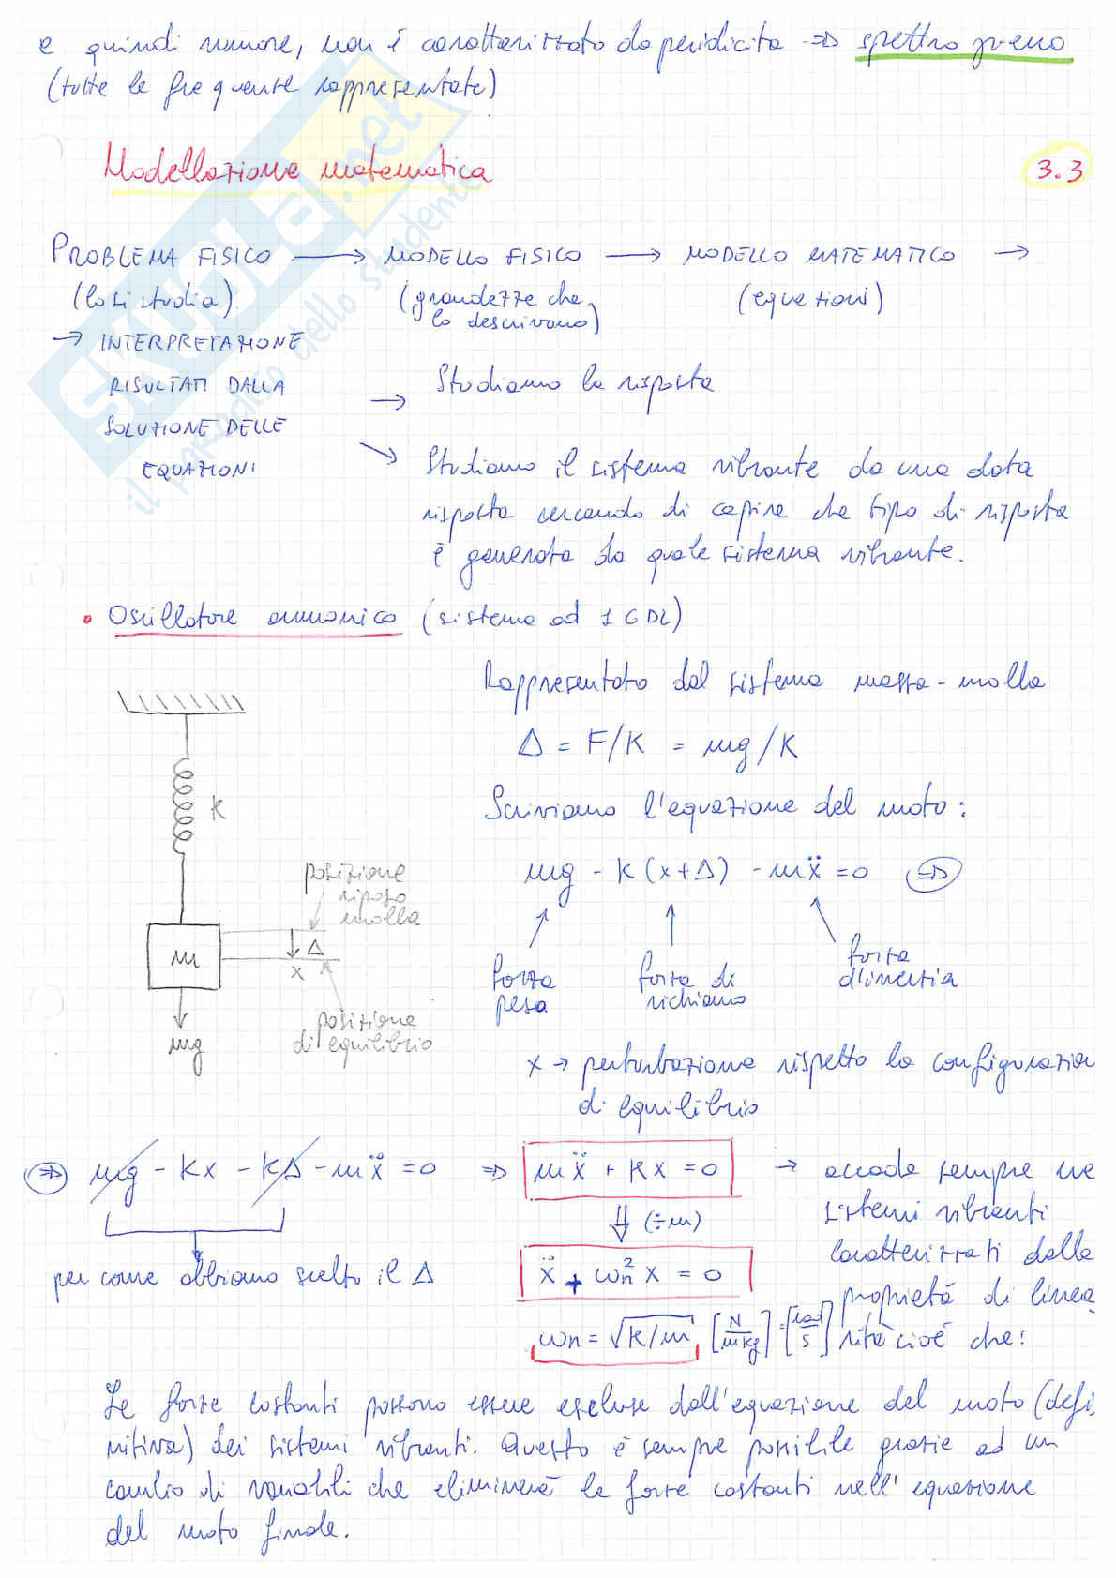 e quindi rumore, non è caratterizzato da peridicita => spettro pieno
(tutte le frequenze rappresentate)
Modellazione matematica
3.3
PROBLEMA FISICO → MODELLO FISICO → MODELLO MATEMATICO →
(lo si studia) (grandezze che lo descrivono) (equazioni)
→ INTERPRETAZIONE
RISULTATI DALLA
SOLUZIONE DELLE
EQUAZIONI
→ Studiamo la risposta
→ Studiamo il sistema vibrante da una data
risposta cercando di capire che tipo di risposta
è generata da quale sistema vibrante.
• Oscillatore armonico (sistema ad 1 GDL)
Rappresentato dal sistema massa-molla
Δ = F/K = mg/K
Scriviamo l'equazione del moto:
mg - K(x+Δ) - mẍ = 0 =>
forza
peso
forza di
richiamo
forza
d'inerzia
K
posizione
riposo
molla
m
Δ
x
mg
posizione
di equilibrio
x → perturbazione rispetto la configurazion
di equilibrio
=> mg - Kx - KΔ - mẍ = 0 => mẍ + Kx = 0 → accade sempre ne
sistemi vibranti
caratterizzati dalla
proprietà di linea
rità cioè che:
per come abbiamo scelto il Δ
⇓ (÷m)
ẍ + ωn² x = 0
ωn = √K/m [N/mkg] = [rad/s]
Le forze costanti possono essere escluse dall'equazione del moto (defi
nitiva) dei sistemi vibranti. Questo è sempre possibile grazie ad un
cambio di variabili che eliminerà le forze costanti nell'equazione
del moto finale.
SKUOLA.net
il paradiso dello studente